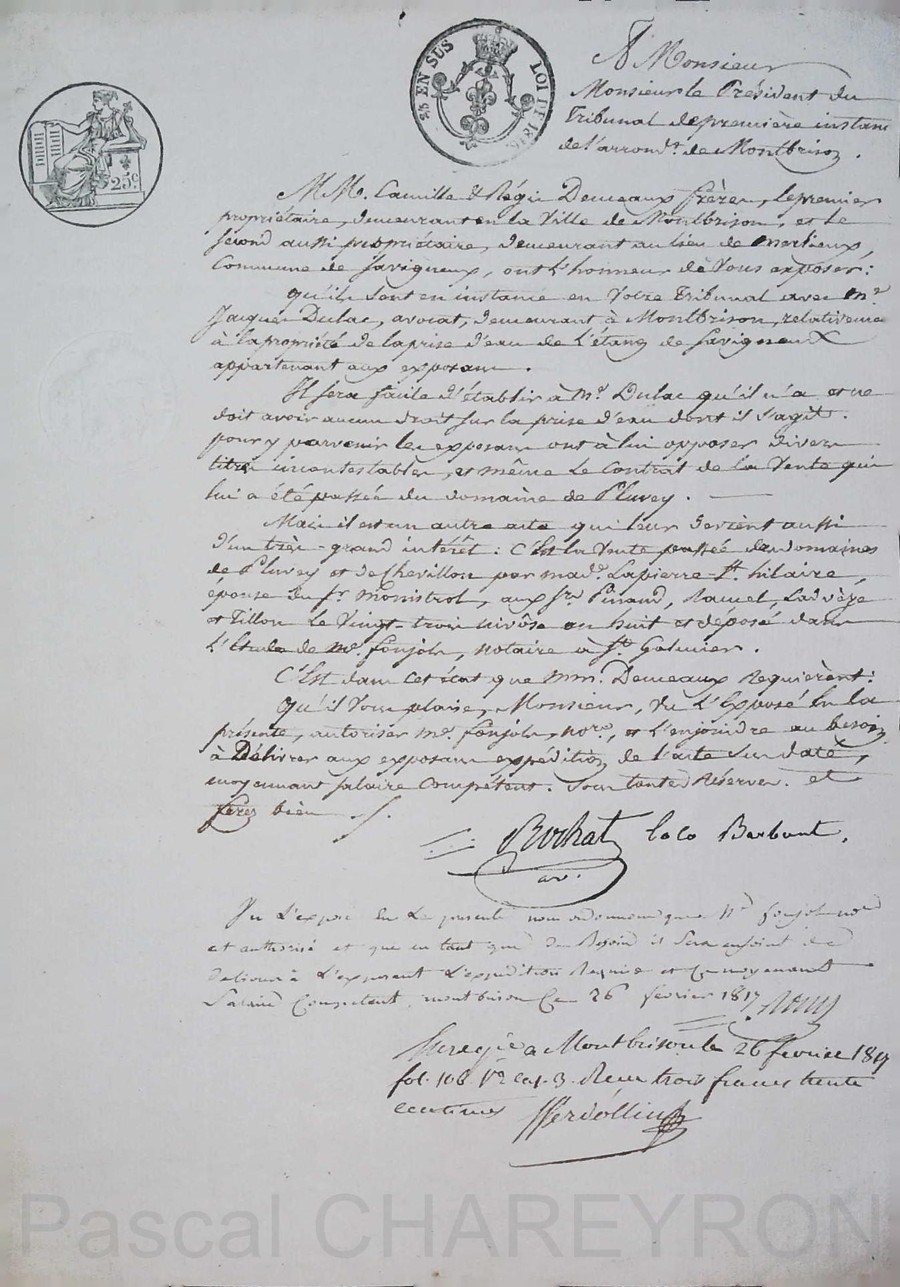 25 EN SUS LOI DE 1816
25c
A Monsieur
Monsieur le Président du
Tribunal de première instance
de l'arrondt. de Montbrison.
MM. Camille & Régis Demeaux frères, le premier
propriétaire, demeurant en la Ville de Montbrison, et le
second aussi propriétaire, demeurant au lieu de Merlieux,
Commune de Savigneux, ont l'honneur de Vous exposer:
qu'ils sont en instance en Votre Tribunal avec Me.
Jacques Dulac, avocat, demeurant à Montbrison, relativement
à la propriété de la prise d'eau de l'étang de Savigneux
appartenant aux exposans.
Il sera facile d'établir à Mr. Dulac qu'il n'a et ne
doit avoir aucun droit sur la prise d'eau dont il s'agit.
pour y parvenir les exposans ont à lui opposer divers
titres incontestables, et même le contrat de la Vente qui
lui a été passée du domaine de Pluvey.
Mais il est un autre acte qui leur devient aussi
d'un très-grand intérêt: C'est la Vente passée des domaines
de Pluvey et de Chevillon par made. Lapierre-St. hilaire,
épouse du Sr. Monistrol, aux Srs. Pinaud, Ladvèze
et Tillon le Vingt-trois nivôse an huit et déposé dans
l'Etude de Me. fonjols, notaire à St. Galmier.
C'est dans cet état que MM. Demeaux Requièrent:
Qu'il Vous plaise, Monsieur, Vu l'Exposé En la
présente, autoriser Me. fonjols, nore., et l'enjoindre au besoin
à Délivrer aux exposans expédition de l'acte sus daté,
moyennant salaire compétent. Sous toutes Réserves. et
ferez bien
Rochat loco Barbant,
av.
Vu l'exposé En la presente nous ordonnons que Me fonjols nore
et authorisé et que en tant que de Besoin il Sera enjoint de
délivrer à l'exposant l'expédition Requise et ce moyennant
Salaire Competent, montbrison Ce 26 février 1817
Enregié a Montbrison le 26 fevrier 1817
fol. 108 Vo. cas. 3. Reçu trois francs trente
centimes
Pascal CHAREYRON